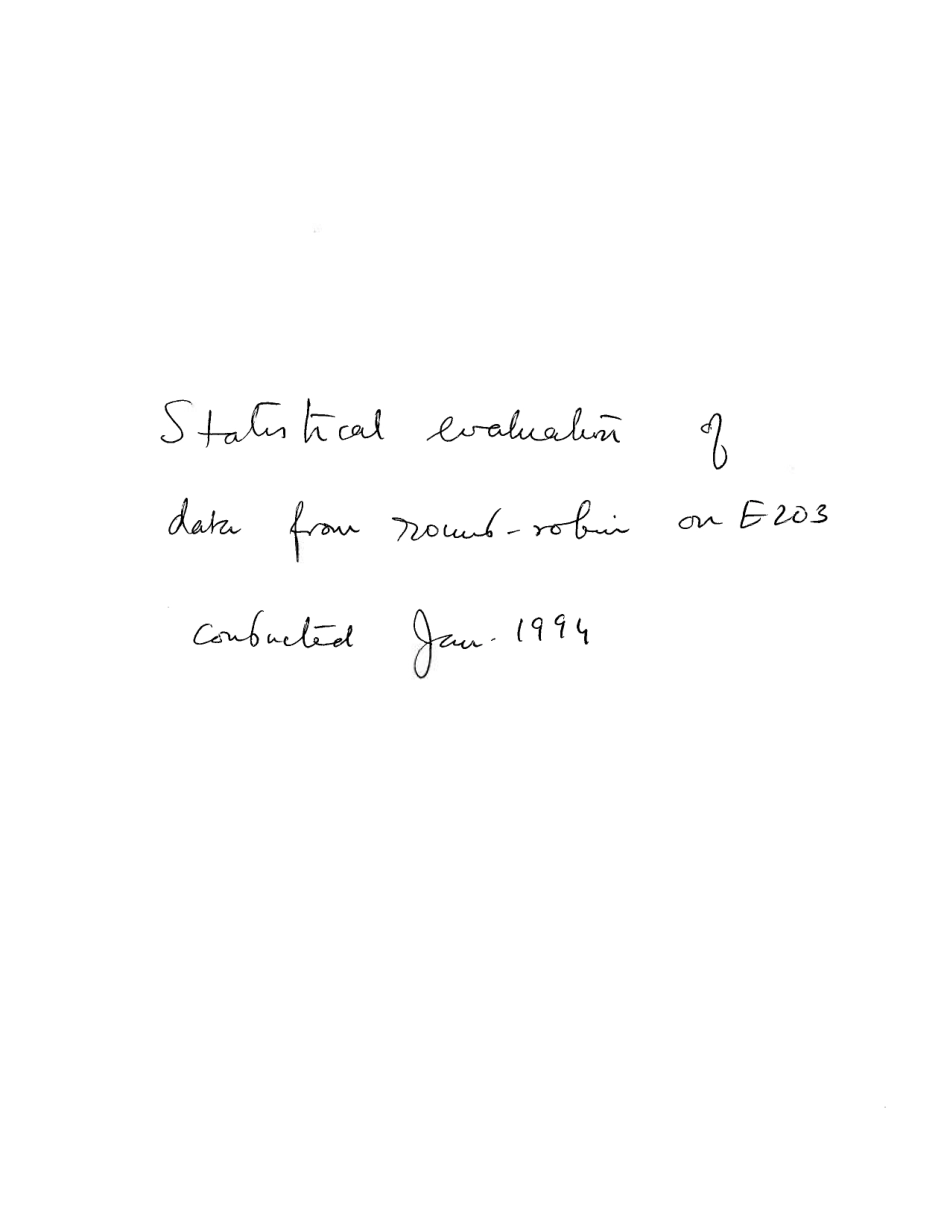 Statistical evaluation of
data from round-robin on E203
conducted Jan. 1994